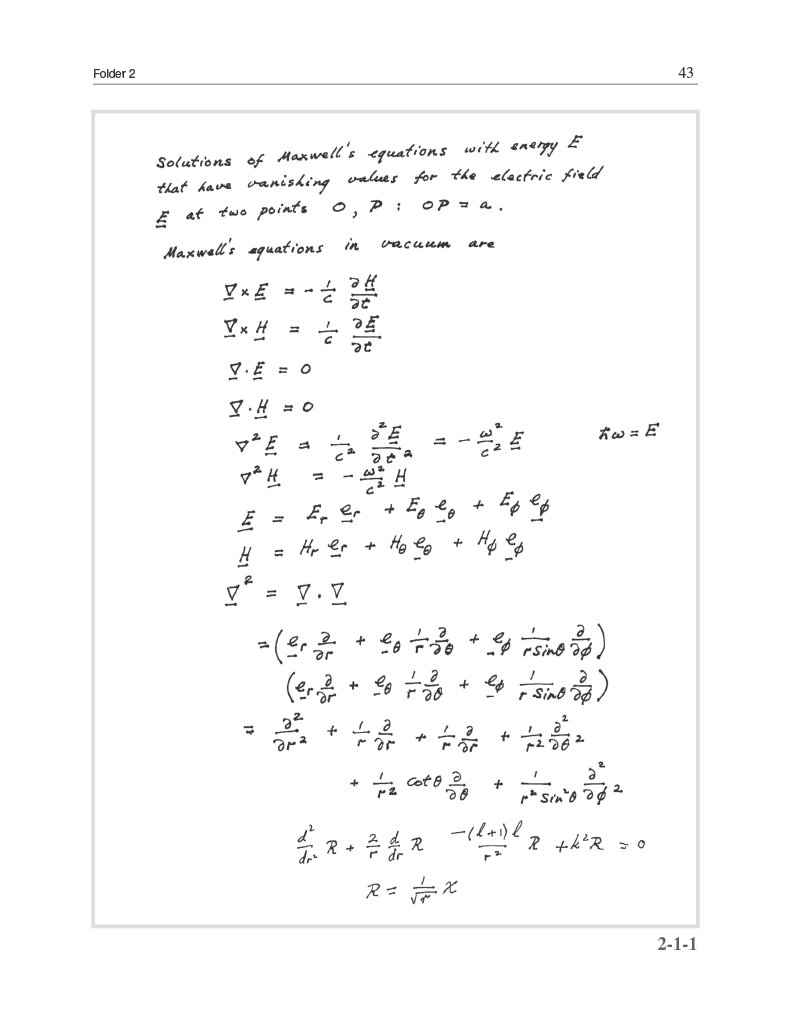 Folder 2 43
Solutions of Maxwell's equations with energy E
that have vanishing values for the electric field
E̲ at two points O, P : OP = a.
Maxwell's equations in vacuum are
∇̲ × E̲ = − 1/c ∂H̲/∂t
∇̲ × H̲ = 1/c ∂E̲/∂t
∇̲ · E̲ = 0
∇̲ · H̲ = 0
∇² E̲ = 1/c² ∂²E̲/∂t² = − ω²/c² E̲ ħω = E
∇² H̲ = − ω²/c² H̲
E̲ = E_r e̲_r + E_θ e̲_θ + E_ϕ e̲_ϕ
H̲ = H_r e̲_r + H_θ e̲_θ + H_ϕ e̲_ϕ
∇̲² = ∇̲ · ∇̲
= (e̲_r ∂/∂r + e̲_θ 1/r ∂/∂θ + e̲_ϕ 1/(r sinθ) ∂/∂ϕ)
(e̲_r ∂/∂r + e̲_θ 1/r ∂/∂θ + e̲_ϕ 1/(r sinθ) ∂/∂ϕ)
= ∂²/∂r² + 1/r ∂/∂r + 1/r ∂/∂r + 1/r² ∂²/∂θ²
+ 1/r² cotθ ∂/∂θ + 1/(r² sin²θ) ∂²/∂ϕ²
d²/dr² R + 2/r d/dr R −(l+1)l/r² R + k²R = 0
R = 1/√r X
2-1-1